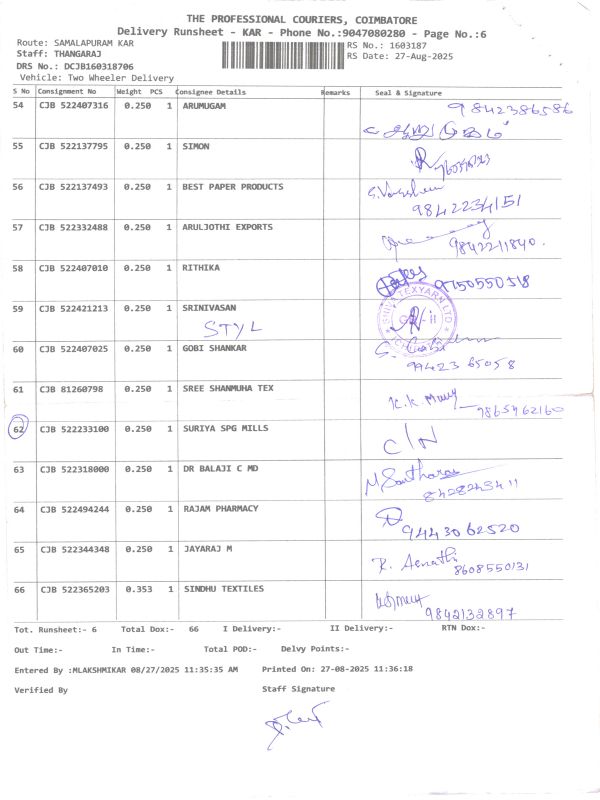 THE PROFESSIONAL COURIERS, COIMBATORE
Delivery Runsheet - KAR - Phone No.:9047080280 - Page No.:6
Route: SAMALAPURAM KAR RS No.: 1603187
Staff: THANGARAJ RS Date: 27-Aug-2025
DRS No.: DCJB160318706
Vehicle: Two Wheeler Delivery
S No Consignment No Weight PCS Consignee Details Remarks Seal & Signature
54 CJB 522407316 0.250 1 ARUMUGAM 9842386586
55 CJB 522137795 0.250 1 SIMON
56 CJB 522137493 0.250 1 BEST PAPER PRODUCTS
9842234151
57 CJB 522332488 0.250 1 ARULJOTHI EXPORTS
9842211840.
58 CJB 522407010 0.250 1 RITHIKA 9750550518
59 CJB 522421213 0.250 1 SRINIVASAN
STYL
SHIVA TEXYARN LTD
60 CJB 522407025 0.250 1 GOBI SHANKAR
99423 65058
61 CJB 81260798 0.250 1 SREE SHANMUHA TEX
9865962160
62 CJB 522233100 0.250 1 SURIYA SPG MILLS
C/N
63 CJB 522318000 0.250 1 DR BALAJI C MD
64 CJB 522494244 0.250 1 RAJAM PHARMACY
9443062520
65 CJB 522344348 0.250 1 JAYARAJ M
8608550131
66 CJB 522365203 0.353 1 SINDHU TEXTILES
9842132897
Tot. Runsheet:- 6 Total Dox:- 66 I Delivery:- II Delivery:- RTN Dox:-
Out Time:- In Time:- Total POD:- Delvy Points:-
Entered By :MLAKSHMIKAR 08/27/2025 11:35:35 AM Printed On: 27-08-2025 11:36:18
Verified By Staff Signature